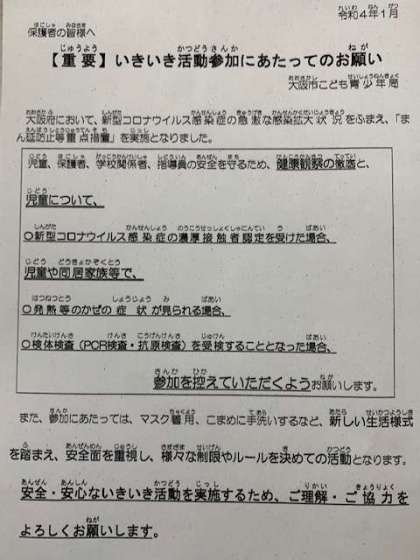 令和４年１月
保護者の皆様へ
【重要】いきいき活動参加にあたってのお願い
大阪市こども青少年局
大阪府において、新型コロナウイルス感染症の急激な感染拡大状況をふまえ、「ま
ん延防止等重点措置」を実施となりました。
児童、保護者、学校関係者、指導員の安全を守るため、健康観察の徹底と、
児童について、
○新型コロナウイルス感染症の濃厚接触者認定を受けた場合、
児童や同居家族等で、
○発熱等のかぜの症状が見られる場合、
○検体検査（PCR検査・抗原検査）を受検することとなった場合、
参加を控えていただくようお願いします。
また、参加にあたっては、マスク着用、こまめに手洗いするなど、新しい生活様式
を踏まえ、安全面を重視し、様々な制限やルールを決めての活動となります。
安全・安心ないきいき活動を実施するため、ご理解・ご協力を
よろしくお願いします。